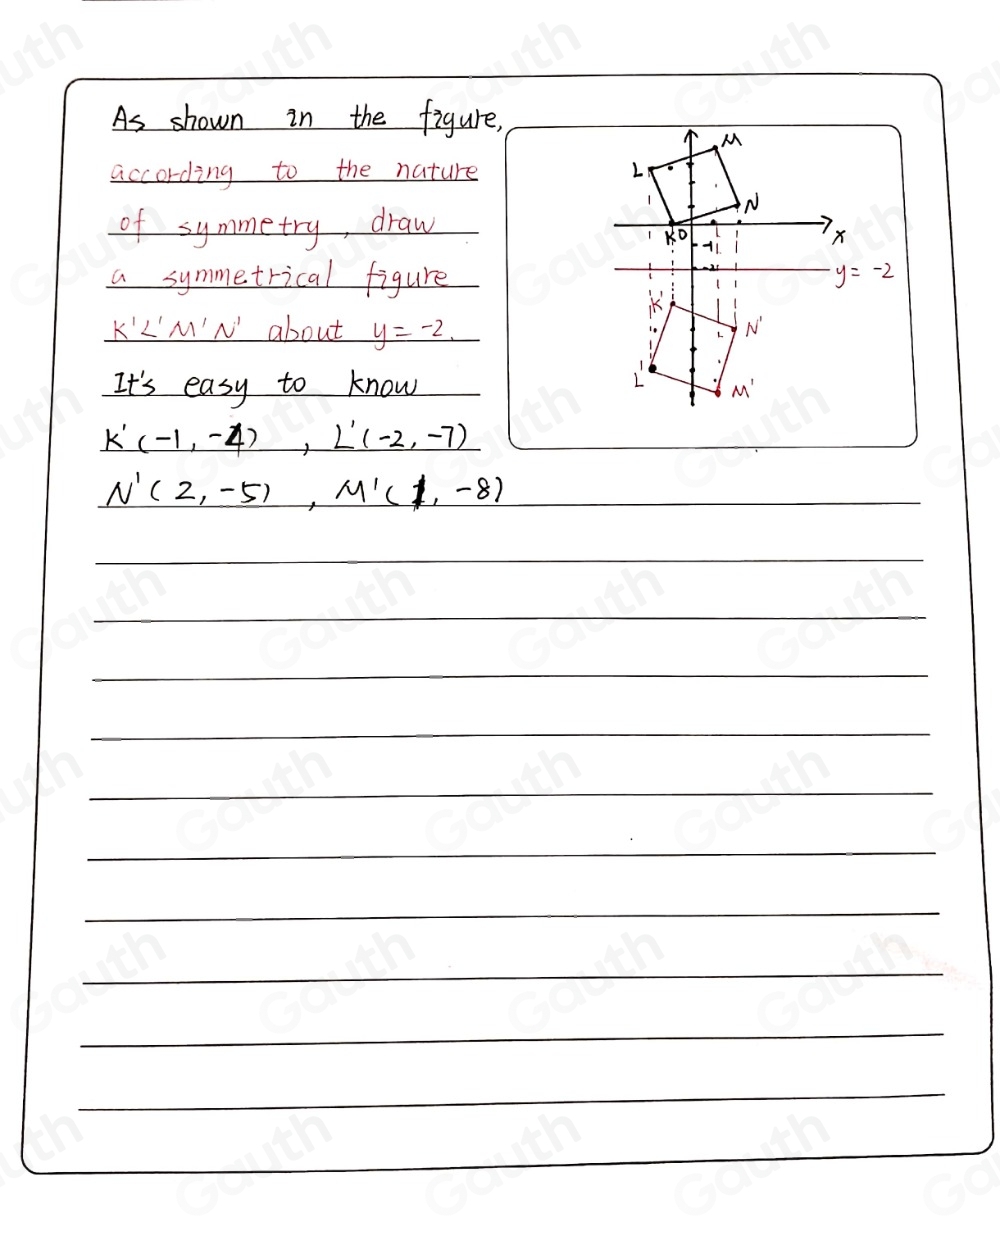 As shown in the figure,
according to the nature
of symmetry, draw
a symmetrical figure
K'L'M'N' about y=-2.
It's easy to know
K'(-1,-4), L'(-2,-7)
N'(2,-5), M'(1,-8)
M
L
N
K O
x
-1
-2
y=-2
K'
N'
L'
M'
Gauth